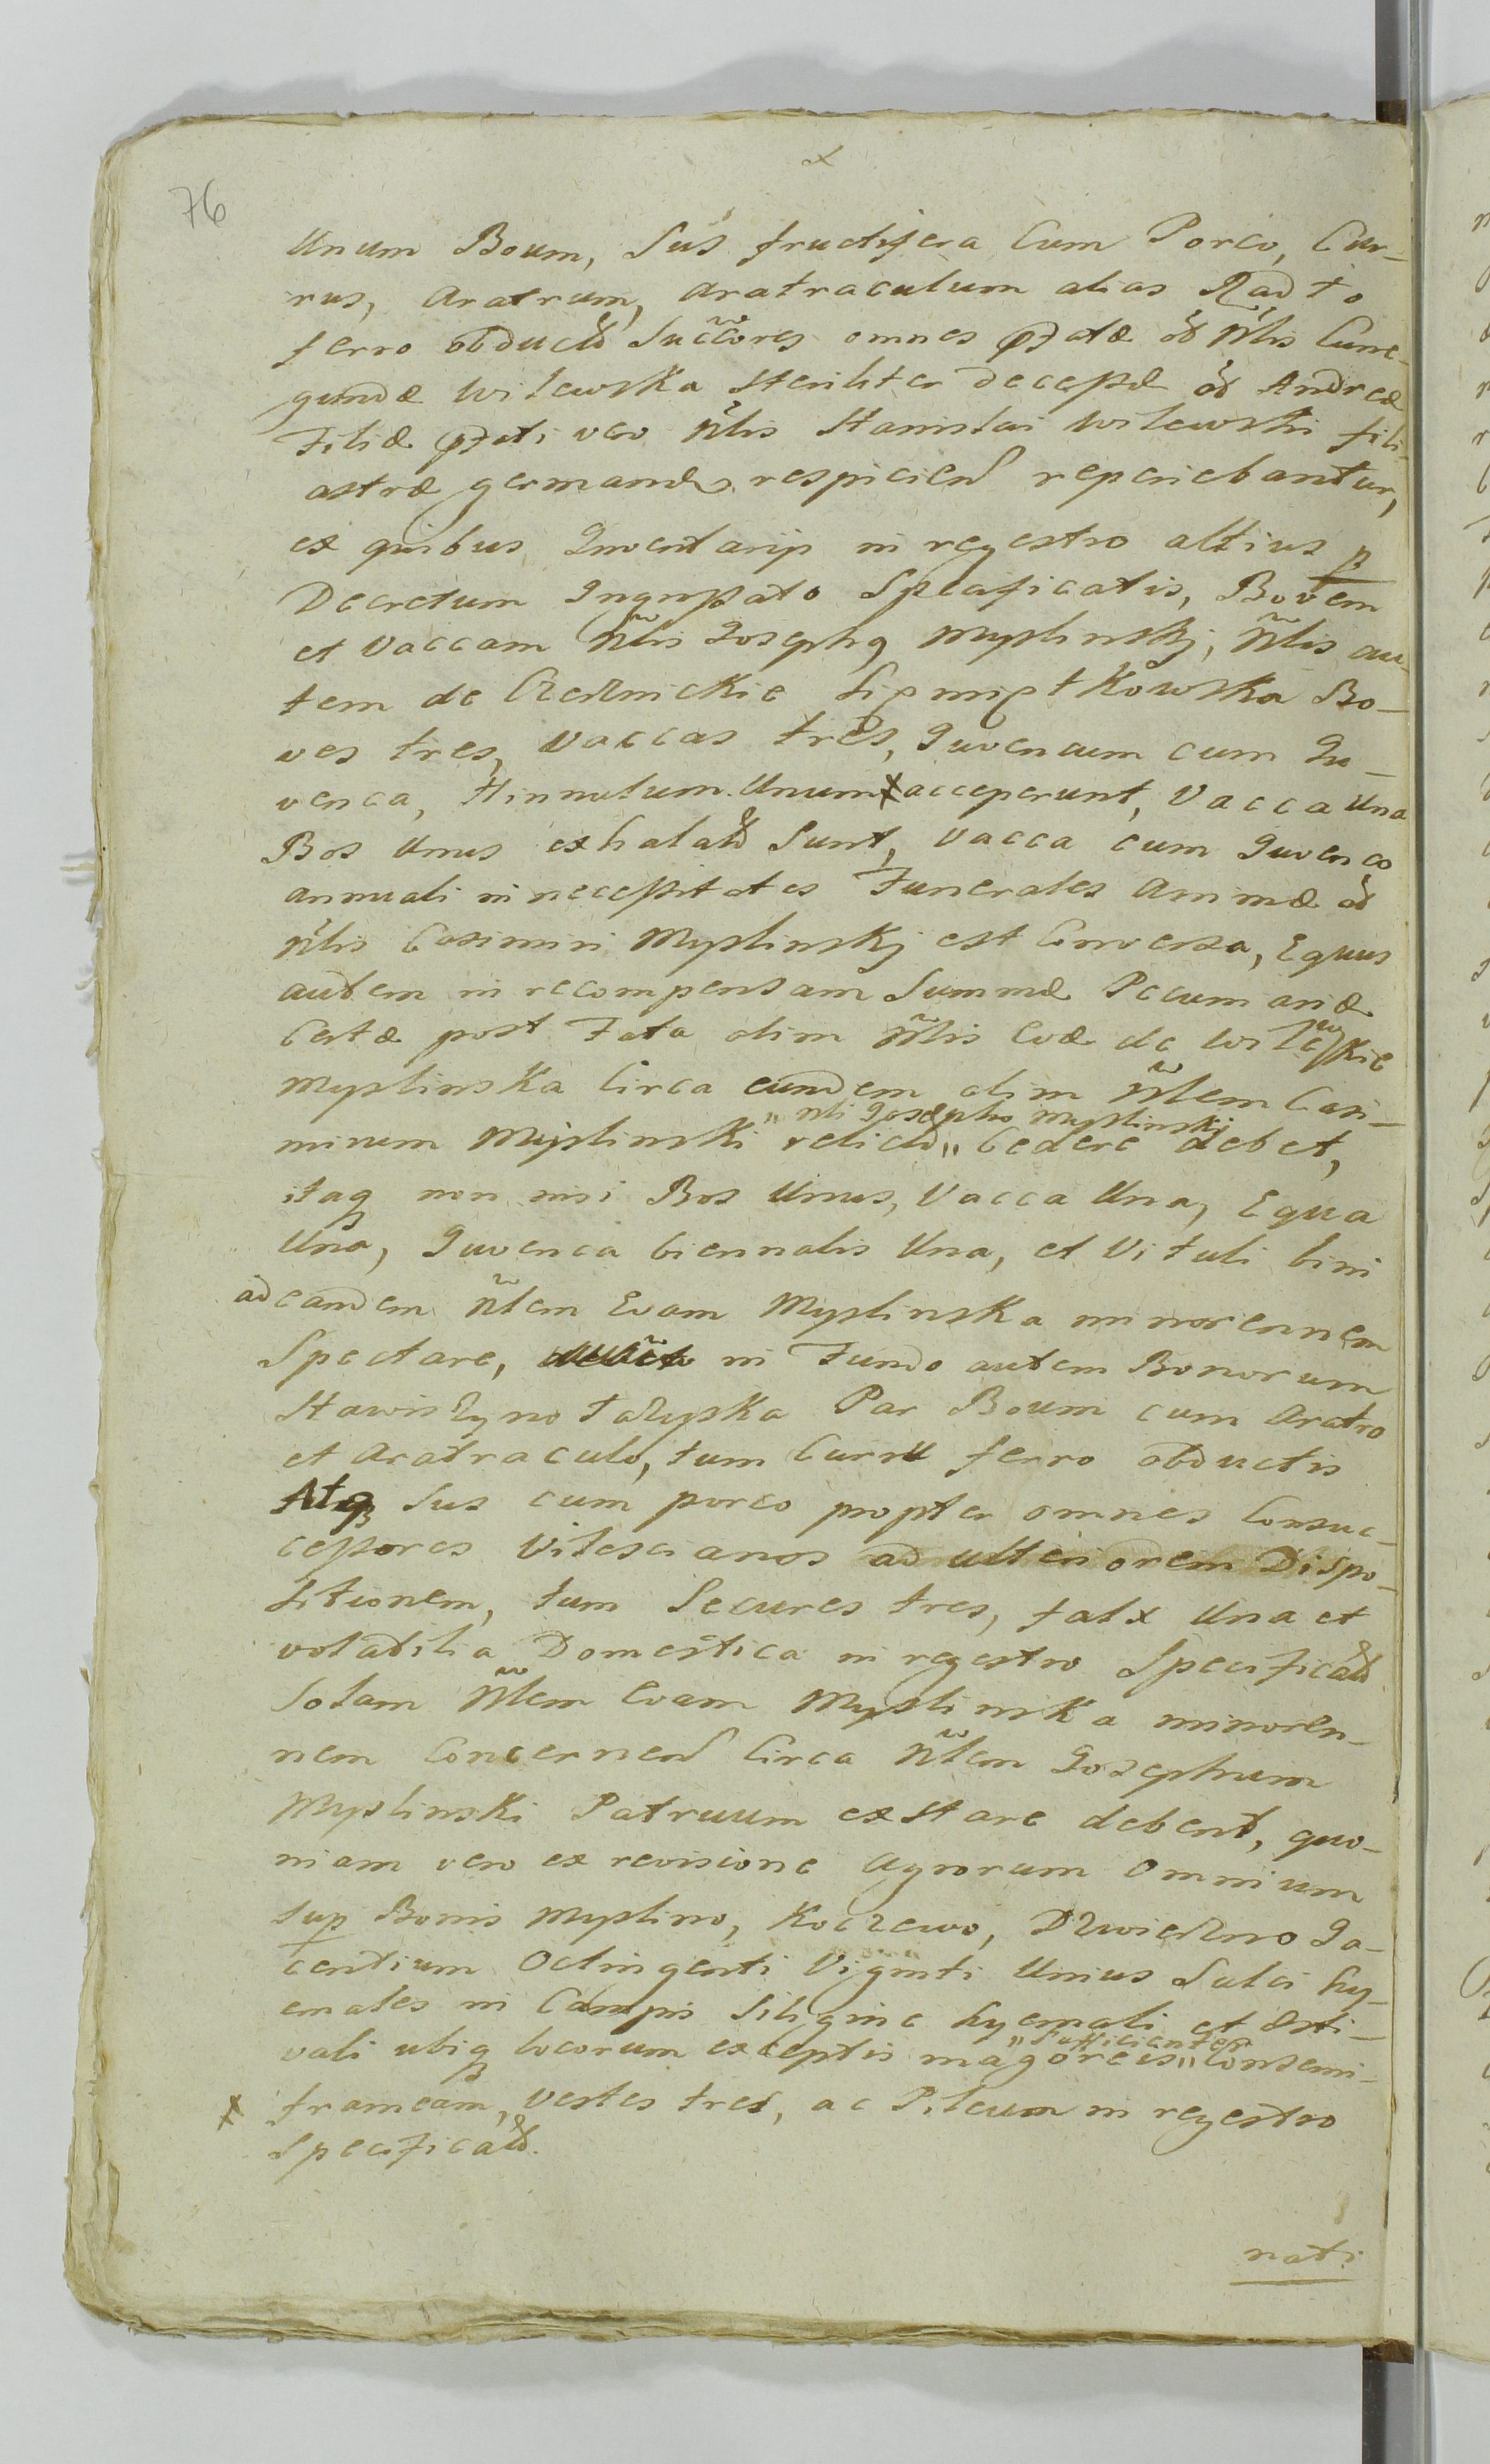 76
Unum Boum, Sus fructifera Cum Porco, Cur-
rus, Aratrum, Aratraculum alias Radło
ferro obduct Succores omnes pdtæ ol Nlis Cune-
gundæ Wilewska Steriliter decessæ ol Andreæ
Filiæ pdti vero Nlis Stanislai Wilewski fili-
astræ germanæ respicien reperiebantur,
ex quibus Inventarijs in regestro altius p
Decretum Ingrossato Specificatis, Bovem
et Vaccam Nlis Josephg Mysliński, Nlis au-
tem de
ves tres, Vaccas tres, Juvencum cum Ju-
venca, Hinnulum Unum x acceperunt, Vacca Una
Bos Unus exhalat Sunt, Vacca cum Juvenco
annuali in necessitates Funerales Animæ ol
Nlis Casimiri Myslinskj est Conversa, Equus
autem in recompensam Summæ Pecuniariæ
Certæ post Fata olim Nlis Evæ de Wilewskie
Myslinska Circa eundem olim Nlem Casi-
" nli Josepho Myslinskj
mirum Myslinski relict " Cedere debet,
itaq non nisi Bos Unus, Vacca Una, Equa
Una, Juvenca biennalis Una, et Vituli bini
ad eandem Nlem Evam Myslinska minorennem
Spectare, in Fundo autem Bonorum
Stawiszyno Łazyska Par Boum cum Aratro
et Aratraculo, tum Curru ferro obductis
Atq Sus cum porco propter omnes Consuc-
cessores Vilescianos ad ulteriorem Dispo-
sitionem, tum Secures tres, falx Una et
volatilia Domestica in regestro Specificat
Solam Nlem Evam Myslinska minoren-
nem Concernen Circa Nlem Josephum
Myslinski Patruum exstare debent, quo-
niam vero ex revisione Agrorum Omnium
sup Bonis Myslino, Koczewo, Ja-
centium Octingenti Viginti Unius Sulci hy-
emales in Campis Siligine hyemali et Æsti-
" Sufficienter
vali ubiq locorum exceptis magoreis " Consemi-
x frameam, Vestes tres, ac Pileum in regestro
Specificat.
nati